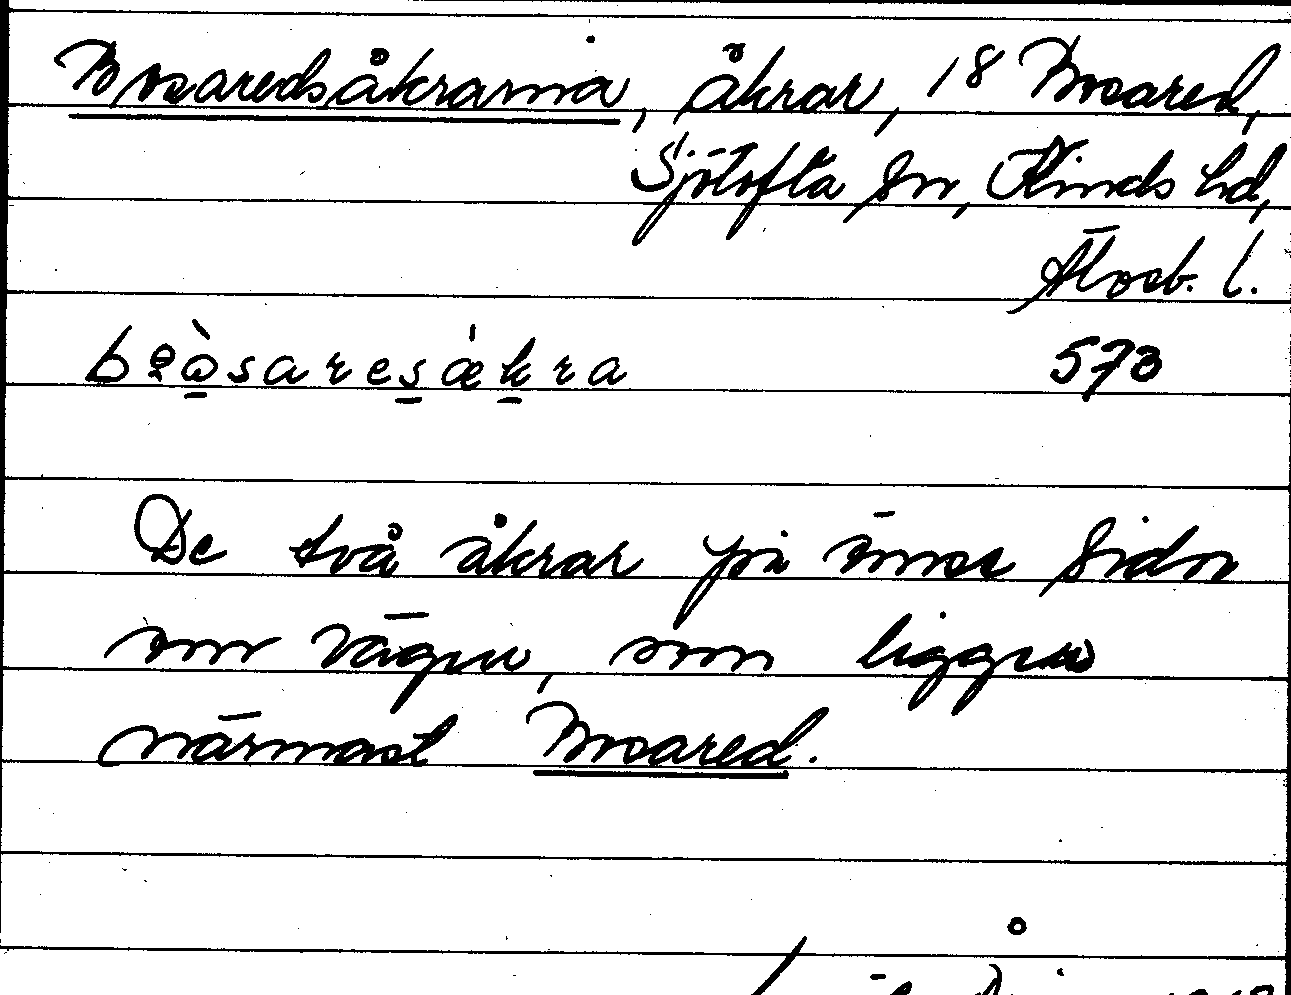 Bosaredsåkrarna, åkrar, 18 Bosared,
Sjötofta sn, Kinds hd,
Älvsb. l.
573
De två åkrar på ömse sidor
om vägen, som ligger
närmast Bosared.